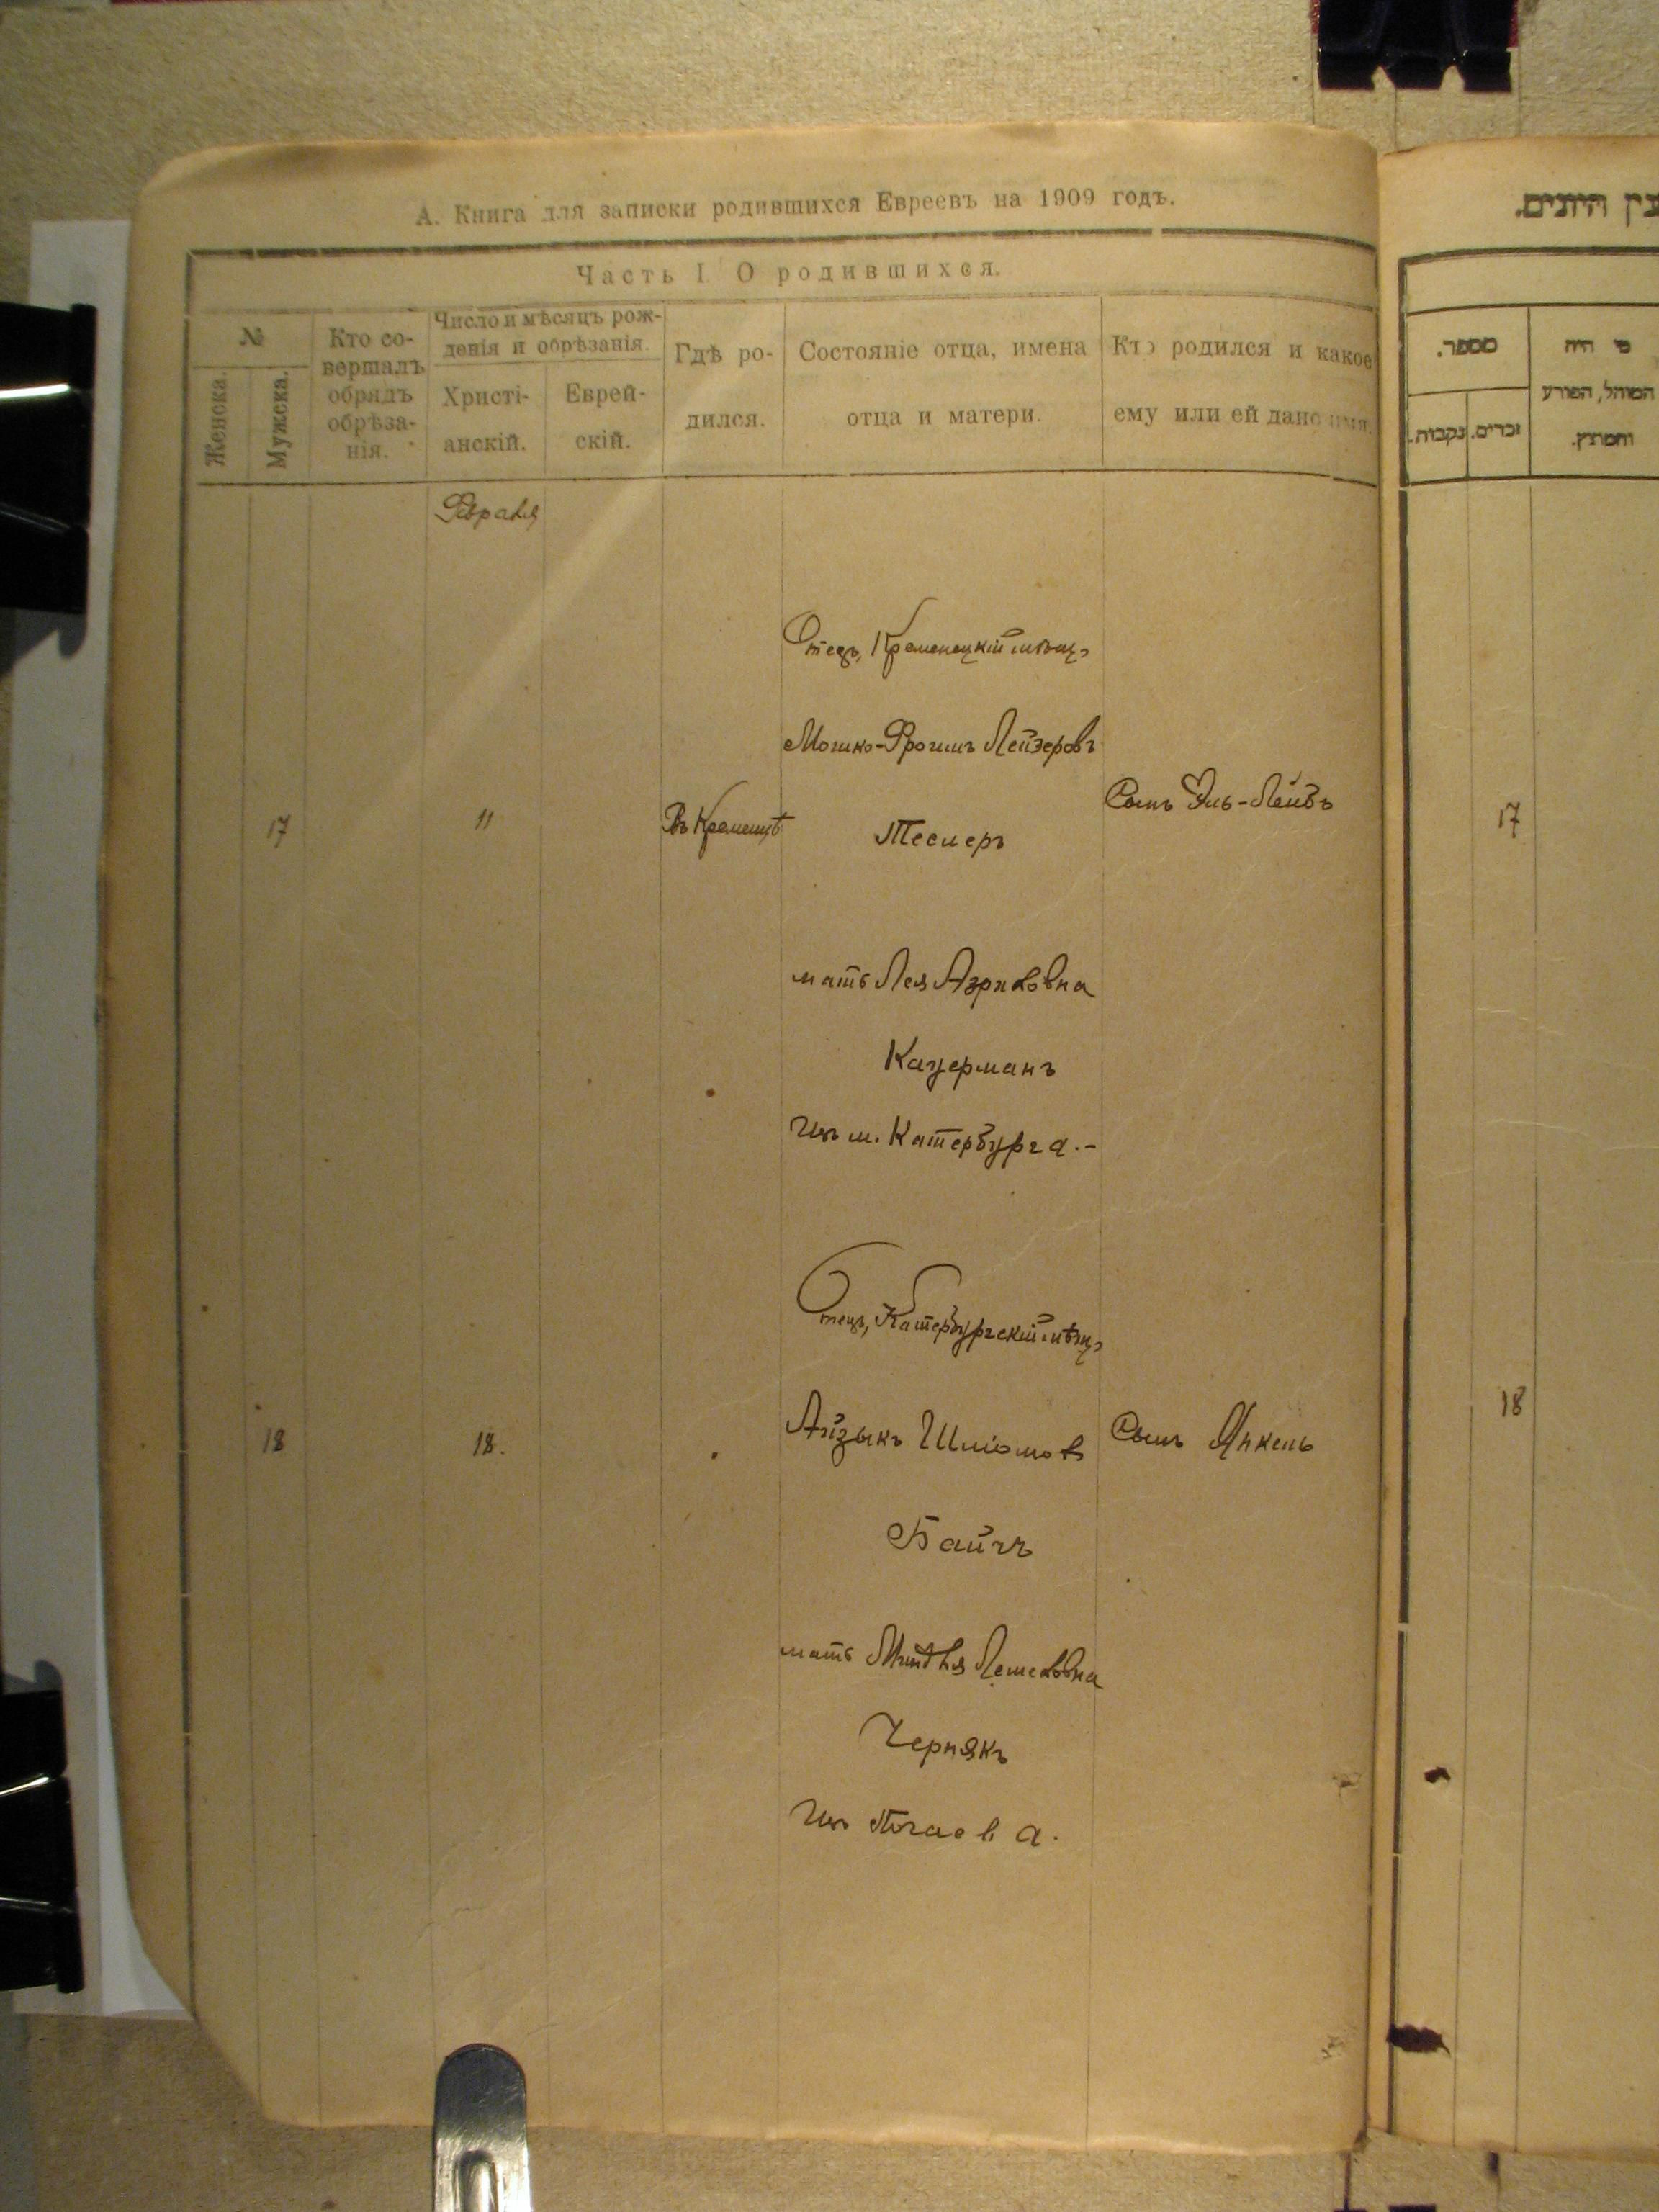 А. Книга для записки родившихся Евреевъ на 1909 годъ.
Часть I. О родившихся.
№
Женска.
Мужска.
Кто со-
вершалъ
обрядъ
обрѣза-
нія.
Число и мѣсяцъ рож-
денія и обрѣзанія.
Христі-
анскій.
Еврей-
скій.
Гдѣ ро-
дился.
Состояніе отца, имена
отца и матери.
Кто родился и какое
ему или ей дано имя.
Февраля
17
11
Въ Кременцѣ
Отецъ, Кременецкій мѣщ.
Мошко-Фроимъ Лейзеровъ
Теслеръ
мать Лея Азриловна
Кацерманъ
Изъ м. Катербурга.-
Сынъ Эль-Лейбъ
18
18.
Отецъ, Катербургскій мѣщ.
Айзыкъ Шліомов
Байчъ
мать
Чернякъ
Изъ Почаева.
Сынъ Янкель
מספר.
זכרים.
נקבות.
מי היה
המוהל, הפורע
והמוצץ.
17
18